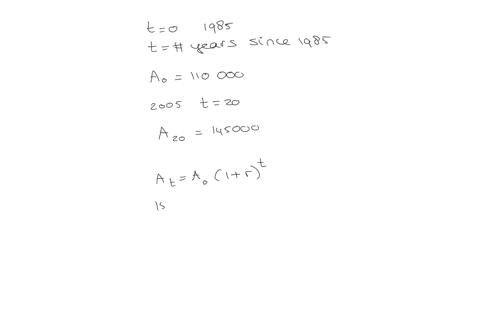 t=0 1985
t = # years since 1985
A₀ = 110 000
2005 t = 20
A₂₀ = 145000
Aₜ = A₀ (1+r)ᵗ
15